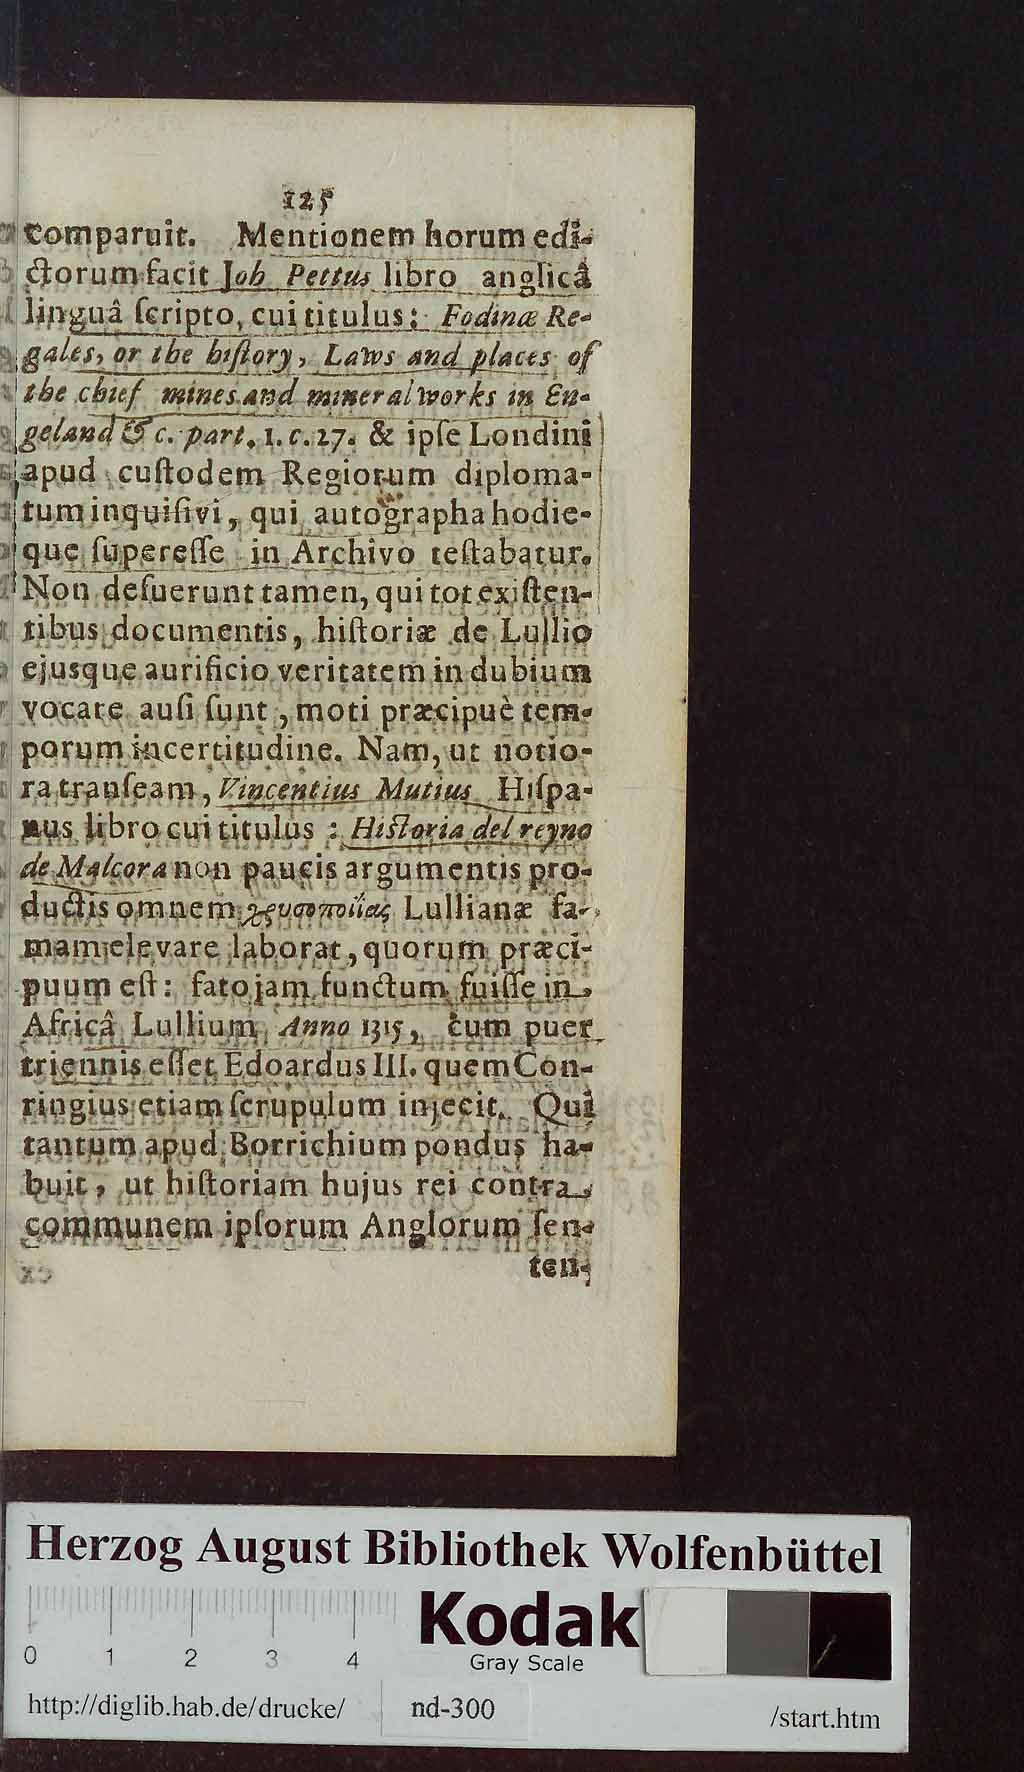 125
comparuit. Mentionem horum edi-
ctorum facit Joh. Pettus libro anglicâ
linguâ ſcripto, cui titulus: Fodinæ Re-
gales, or the hiſtory, Laws and places of
the chief mines and mineral works in En-
geland & c. part. 1. c. 27. & ipſe Londini
apud cuſtodem Regiorum diploma-
tum inquiſivi, qui autographa hodie-
que ſupereſſe in Archivo teſtabatur.
Non defuerunt tamen, qui tot exiſten-
tibus documentis, hiſtoriæ de Lullio
ejusque aurificio veritatem in dubium
vocare auſi ſunt, moti præcipuè tem-
porum incertitudine. Nam, ut notio-
ra tranſeam, Vincentius Mutius Hiſpa-
nus libro cui titulus : Hiſtoria del reyno
de Malcora non paucis argumentis pro-
ductis omnem χρυσοποιΐας Lullianæ fa-
mam elevare laborat, quorum præci-
puum eſt: fato jam functum fuiſſe in
Africâ Lullium Anno 1315, cum puer
triennis eſſet Edoardus III. quem Con-
ringius etiam ſcrupulum injecit. Qui
tantum apud Borrichium pondus ha-
buit, ut hiſtoriam hujus rei contra
communem ipſorum Anglorum ſen-
ten-
Herzog August Bibliothek Wolfenbüttel
Kodak
Gray Scale
0 1 2 3 4
http://diglib.hab.de/drucke/ nd-300 /start.htm